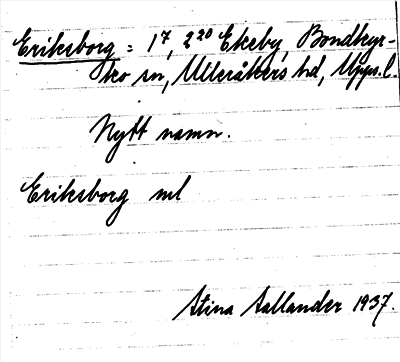 Eriksborg = 1⁷, 2²⁰ Ekeby, Bondkyr-
ko sn, Ulleråkers hd, Upps. l.
Nytt namn.
Eriksborg ml
Stina Sallander 1937.